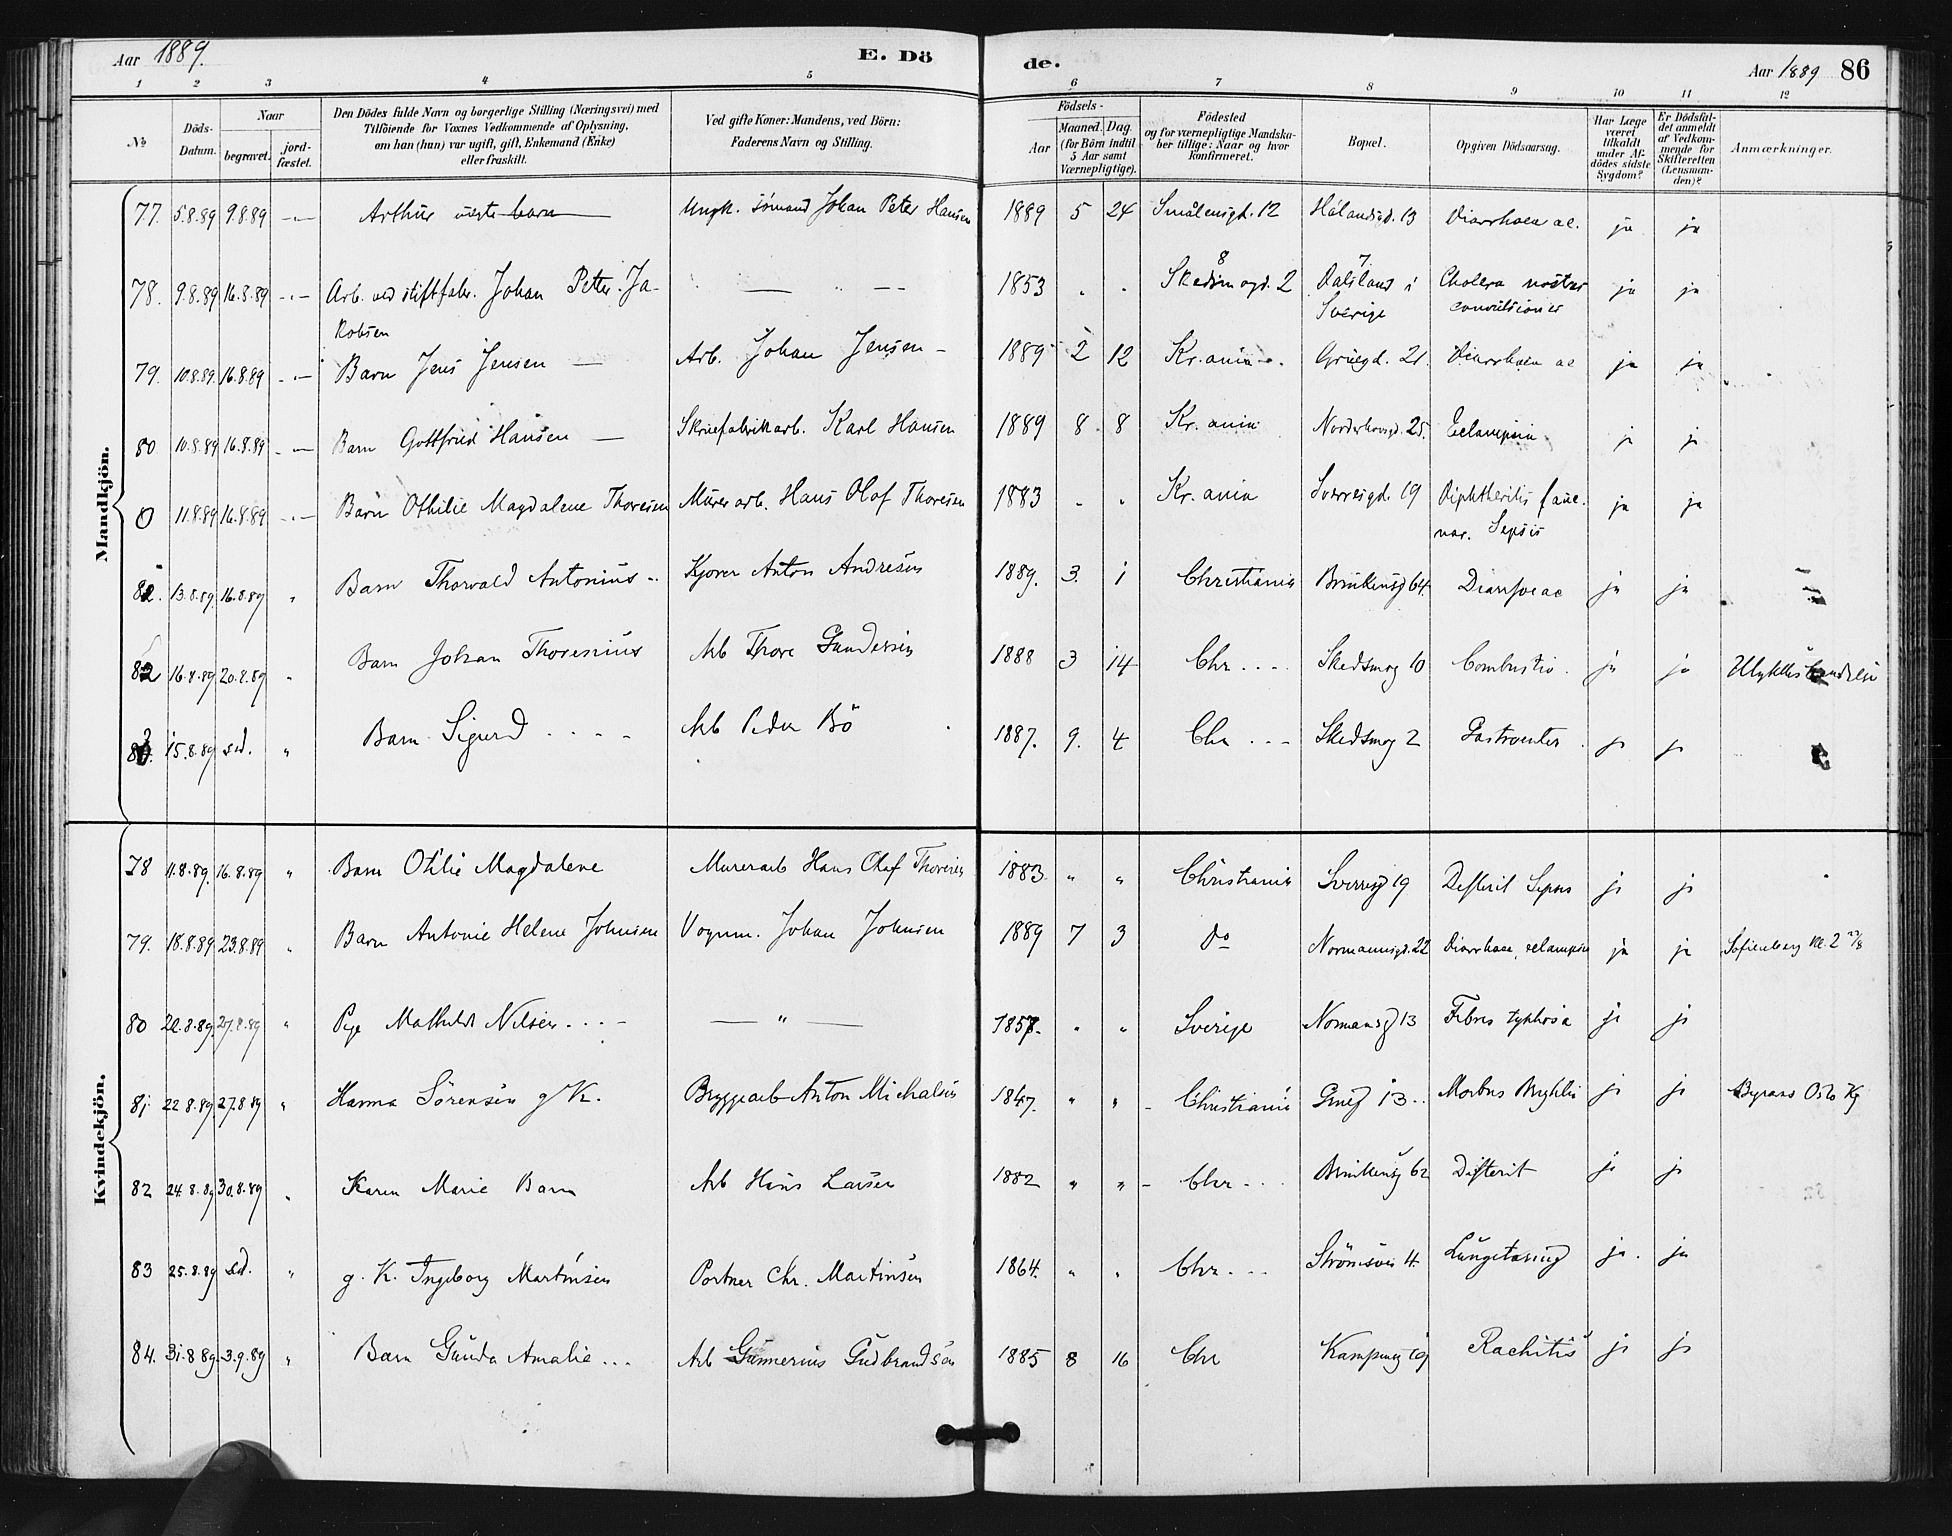 Aar 1889.
E. Dö
de.
Aar 1889
86
1 2 3 4 5 6 7 8 9 10 11 12
№
Döds-Datum.
Naar
begravet.
jord-fæstet.
Den Dödes fulde Navn og borgerlige Stilling (Næringsvei) med
Tilföiende for Voxnes Vedkommende af Oplysning,
om han (hun) var ugift, gift, Enkemand (Enke)
eller fraskilt.
Ved gifte Koner: Mandens, ved Börn:
Faderens Navn og Stilling.
Födsels-
Aar
Maaned. Dag.
(for Börn indtil
5 Aar samt
Værnepligtige).
Födested
og for værnepligtige Mandska-
ber tillige: Naar og hvor
konfirmeret.
Bopæl.
Opgiven Dödsaarsag.
Har Læge
været
tilkaldt
under Af-
dödes sidste
Sygdom?
Er Dödsfal-
det anmeldt
af Vedkom-
mende for
Skifteretten
(Lensman-
den)?
Anmærkninger.
Mandkjön.
77. 5.8.89 9.8.89 -"- Arthur barn Ungk. sömand Johan Peter Hansen 1889 5 24 Smålensgd. 12 Hålandsgd. 13 Diarrhoea ac. ja ja
78. 9.8.89 16.8.89 -"- Arb. ved stiftfabr. Johan Peter Ja- 1853 " " Skedsmogd. 2 Dalsland i Cholera nostras ja ja
kobsen Sverige convulsiones
79. 10.8.89. 16.8.89 -"- Barn Jens Jensen Arb. Johan Jensen 1889 2 12 Kr.ania Grüegd. 21. Diarrhoea ac ja ja
80 10.8.89 16.8.89 -"- Barn Gottfried Hansen Skruefabrikkarb. Karl Hansen 1889 8 8 Kr.ania Norderhovsgd. 25. Eclampsia j j
0 11.8.89 16.8.89 -"- Barn Othilie Magdalene Thoresen Murerarb. Hans Olaf Thoresen 1883 " " Kr.ania Sverresgd. 19 Diphtheritis fauc. ja ja
nar. Sepsis
13.8.89 16.8.89 " Barn Thorvald Antonius Kjörer Anton Andresen 1889. 3. 1 Christiania Brinkensg 64. Diarrhoe ac ja ja
82 16.8.89 20.8.89 " Barn Johan Thoresenius Arb Thore Gundersen 1888 3 14 Chr Skedsmog 10 Combustio. ja ja Ulykkeshændelse
15.8.89 sed. " Barn Sigurd Arb Peder Bö 1887. 9. 4 Chr Skedsmog 2 Gastroenter j j
Kvindekjön.
78 11.8.89. 16.8.89 " Barn Otilie Magdalene Murerarb Hans Olaf Thoresen 1883. " " Christiania Sverresg 19 Difterit Sepsis j j
79. 18.8.89. 23.8.89 " Barn Antonie Helene Johnsen Vognm. Johan Johnsen 1889 7 3 do Normannsgd. 22 Diarrhoea, eclampsia ja ja Sofienberg Kl. 2 23/8
80 22.8.89. 27.8.89 " Pge Mathilde Nilsen — " — 1857. " " Sverige Normansg 13 Febris typhosa j j
81 22.8.89. 27.8.89 " Hanna Sörensen g K. Bryggearb Anton Michalsen 1847. " " Christiania Grueg 13 Morbus Brightii j j Oslo Kg
82 24.8.89 30.8.89 " Karen Marie Barn Arb Hans Larsen 1882 " " Chr Brinkensg 62 Difterit j j
83 25.8.89 sed. " g. K. Ingeborg Martinsen Portner Chr. Martinsen 1864. " " Chr Strömsvei 4. Lungetæring ja. ja
84. 31.8.89. 3.9.89 " Barn Gunda Amalie Arb Gunnerius Gudbrandsen 1885 8 16 Chr Kampeng 19 Rachitis j j